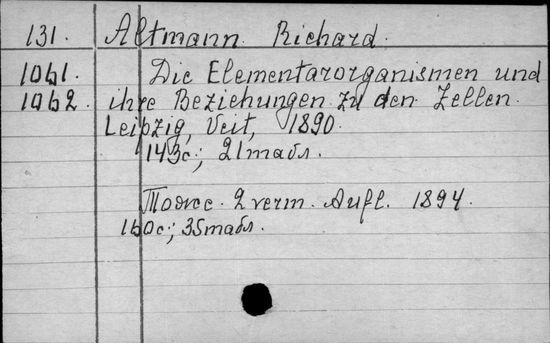 131. Altmann Richard.
1061. Die Elementarorganismen und
1062. ihre Beziehungen zu den Zellen.
Leipzig, Veit, 1890.
143с.; 21табл.
Тоже. 2 verm. Aufl. 1894.
160с.; 35табл.